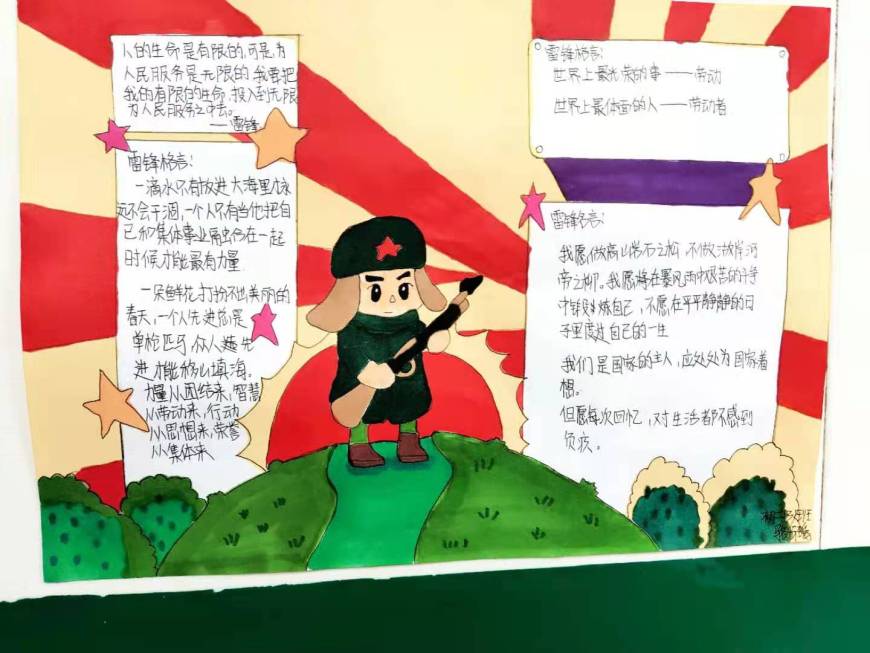 人的生命是有限的,可是,为
人民服务是无限的 我要把
我的有限的生命,投入到无限
为人民服务之中去。
——雷锋
雷锋格言:
一滴水只有放进大海里才永
远不会干涸,一个人只有当他把自
己和集体事业融合在一起
时候才能最有力量
一朵鲜花打扮不出美丽的
春天,一个人先进总是
单枪匹马,众人先进
才能移山填海。
力量从团结来,智慧
从劳动来,行动
从思想来,荣誉
从集体来
雷锋格言:
世界上最光荣的事——劳动
世界上最体面的人——劳动者
雷锋格言:
我愿做高山岩石之松,不做湖岸河
之柳。我愿在暴风雨中艰苦的斗争
中锻炼自己,不愿在平平静静的日
子里度过自己的一生
我们是国家的主人,应处处为国家着
想。
但愿每次回忆,对生活都不感到
负疚。